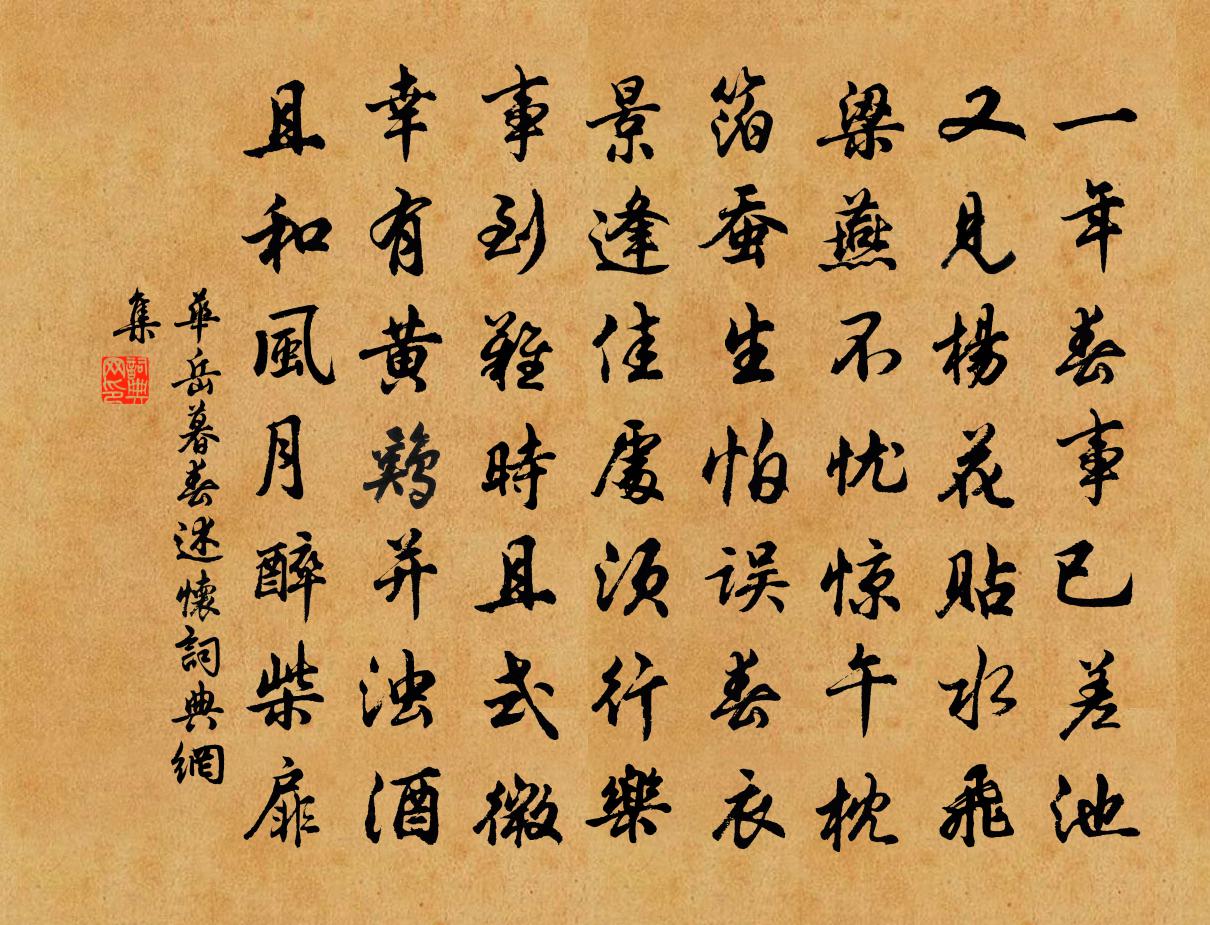 一年春事已差池
又見楊花貼水飛
梁燕不忧惊午枕
箔蚕生怕误春衣
景逢佳處须行樂
事到難時且式微
幸有黄鷄并浊酒
且和風月醉柴扉
華岳暮春述懷詞典網
集
詞典
网印